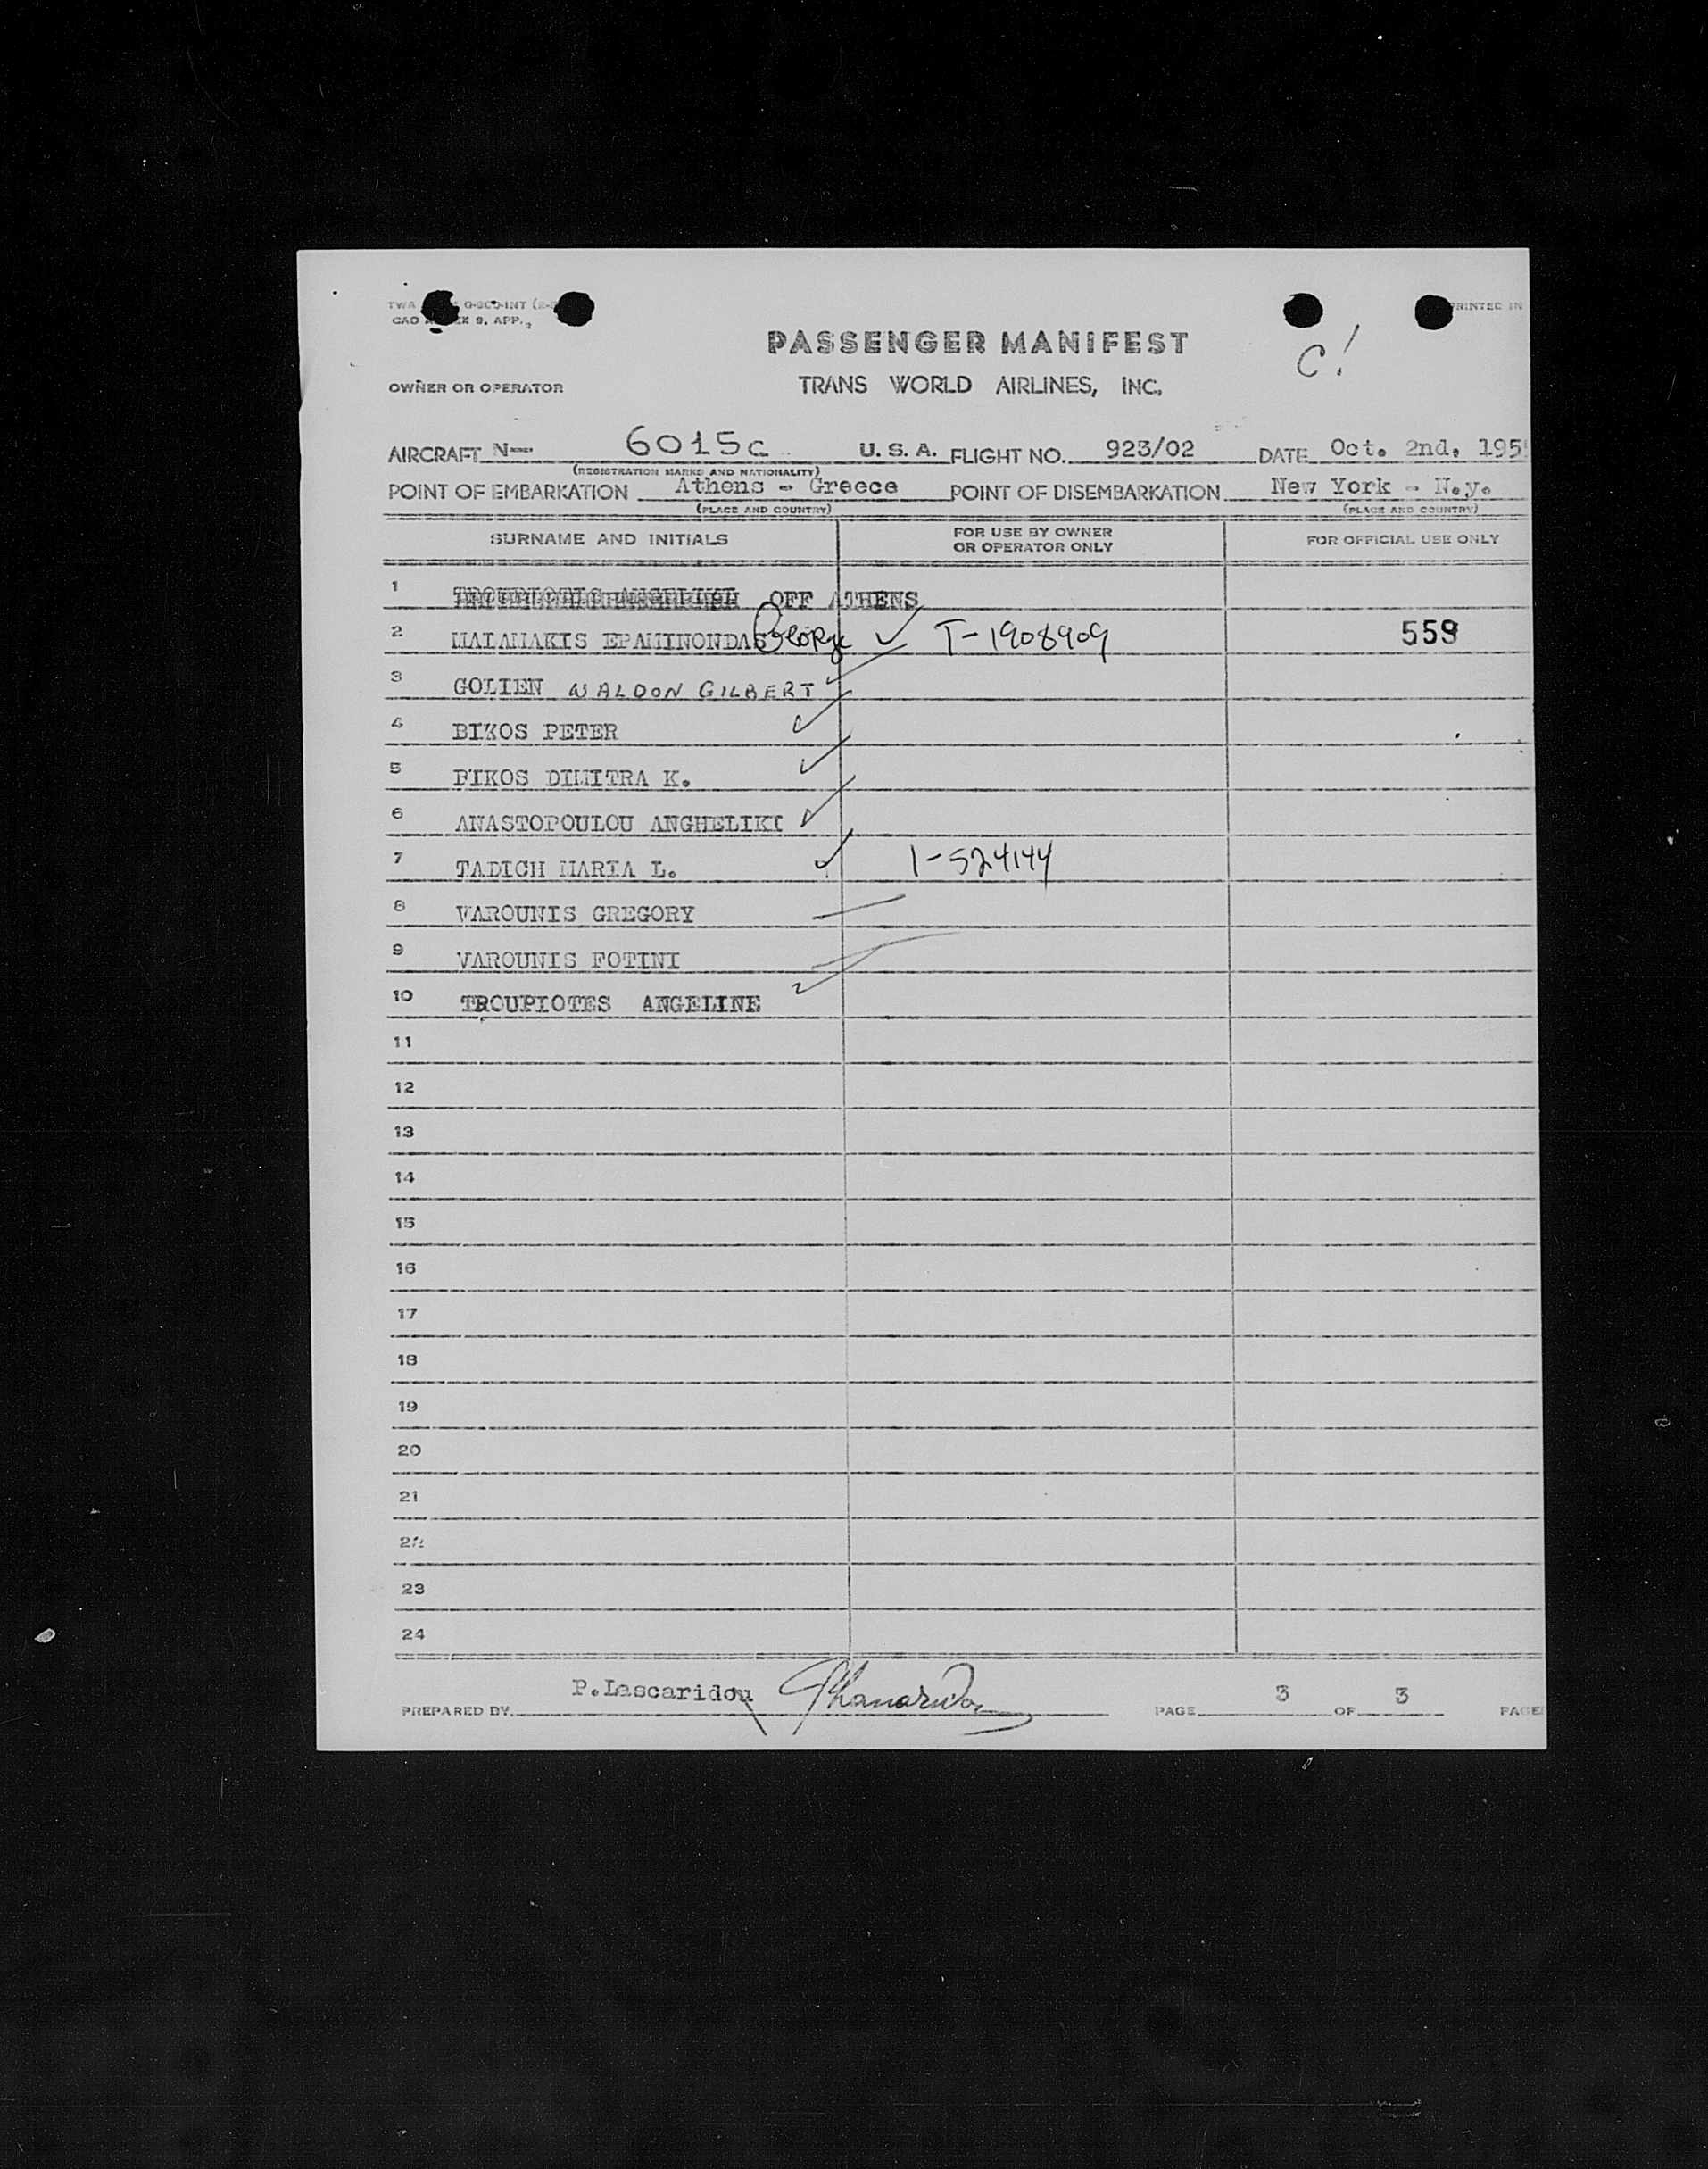 TWA O-800-INT
CAO EX 9, APP. 2
PRINTED IN
PASSENGER MANIFEST
C!
OWNER OR OPERATOR TRANS WORLD AIRLINES, INC.
AIRCRAFT N-- 6015C U. S. A. FLIGHT NO. 923/02 DATE Oct. 2nd. 195
(REGISTRATION MARKS AND NATIONALITY)
POINT OF EMBARKATION Athens - Greece POINT OF DISEMBARKATION New York - N.y.
(PLACE AND COUNTRY) (PLACE AND COUNTRY)
SURNAME AND INITIALS FOR USE BY OWNER OR OPERATOR ONLY FOR OFFICIAL USE ONLY
1 OFF ATHENS
2 MALAMAKIS EPAMINONDAS George ✓ T-1908909 559
3 GOLIEN WALDON GILBERT ✓
4 BIKOS PETER ✓
5 BIKOS DIMITRA K. ✓
6 ANASTOPOULOU ANGHELIKI ✓
7 TADICH MARIA L. ✓ 1-524144
8 VAROUNIS GREGORY
9 VAROUNIS FOTINI
10 TROUPIOTES ANGELINE ✓
11
12
13
14
15
16
17
18
19
20
21
22
23
24
PREPARED BY P.Lascaridou PAGE 3 OF 3 PAGE